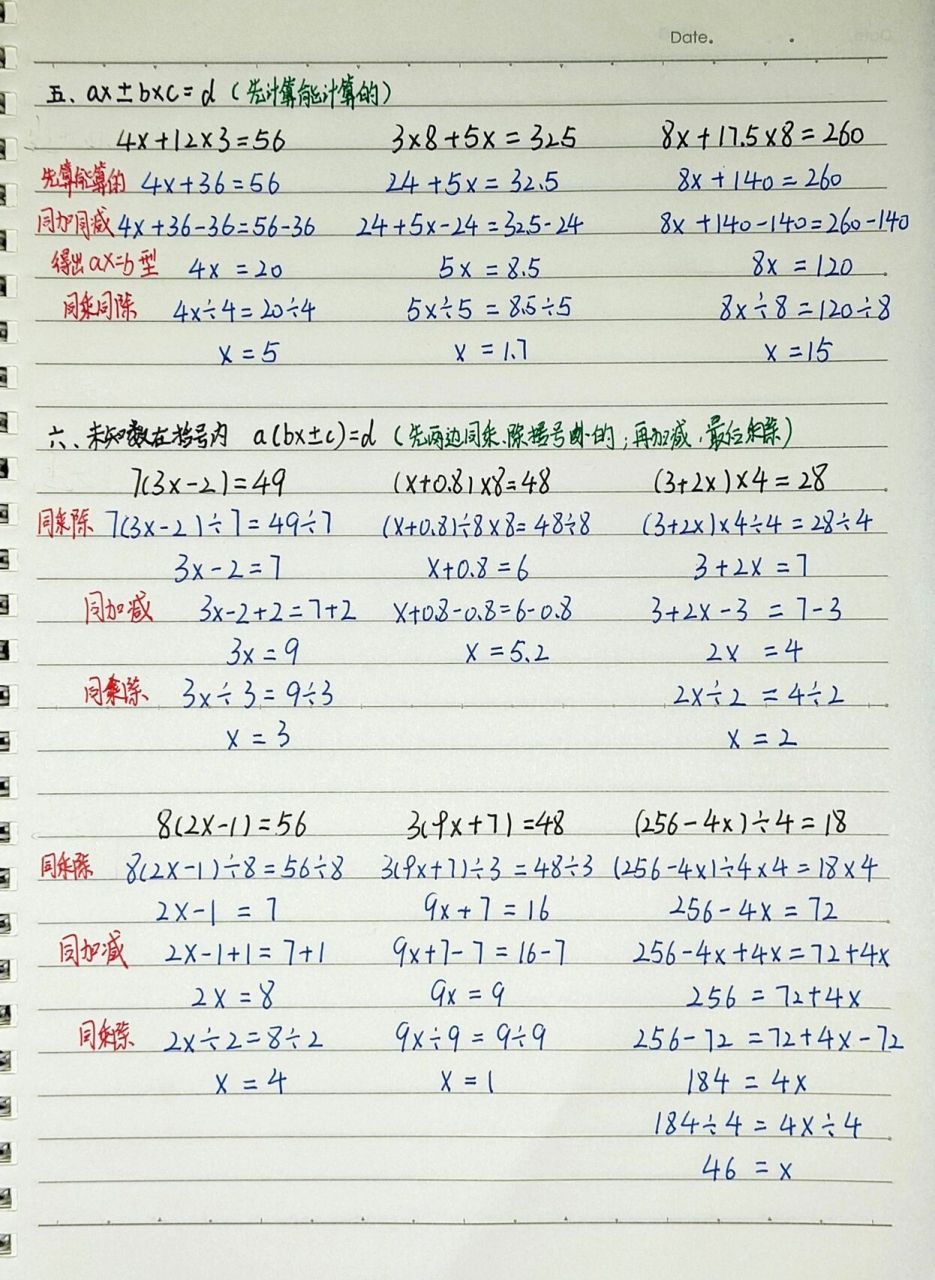 Date.
五、ax±b×c=d（先计算能计算的）
4x+12×3=56 3×8+5x=32.5 8x+17.5×8=260
先算能算的 4x+36=56 24+5x=32.5 8x+140=260
同加同减 4x+36-36=56-36 24+5x-24=32.5-24 8x+140-140=260-140
得出ax=b型 4x=20 5x=8.5 8x=120
同乘同除 4x÷4=20÷4 5x÷5=8.5÷5 8x÷8=120÷8
x=5 x=1.7 x=15
六、未知数在括号内 a(bx±c)=d（先两边同乘、除括号外的，再加减，最后乘除）
7(3x-2)=49 (x+0.8)×8=48 (3+2x)×4=28
同乘除 7(3x-2)÷7=49÷7 (x+0.8)÷8×8=48÷8 (3+2x)×4÷4=28÷4
3x-2=7 x+0.8=6 3+2x=7
同加减 3x-2+2=7+2 x+0.8-0.8=6-0.8 3+2x-3=7-3
3x=9 x=5.2 2x=4
同乘除 3x÷3=9÷3 2x÷2=4÷2
x=3 x=2
8(2x-1)=56 3(9x+7)=48 (256-4x)÷4=18
同乘除 8(2x-1)÷8=56÷8 3(9x+7)÷3=48÷3 (256-4x)÷4×4=18×4
2x-1=7 9x+7=16 256-4x=72
同加减 2x-1+1=7+1 9x+7-7=16-7 256-4x+4x=72+4x
2x=8 9x=9 256=72+4x
同乘除 2x÷2=8÷2 9x÷9=9÷9 256-72=72+4x-72
x=4 x=1 184=4x
184÷4=4x÷4
46=x